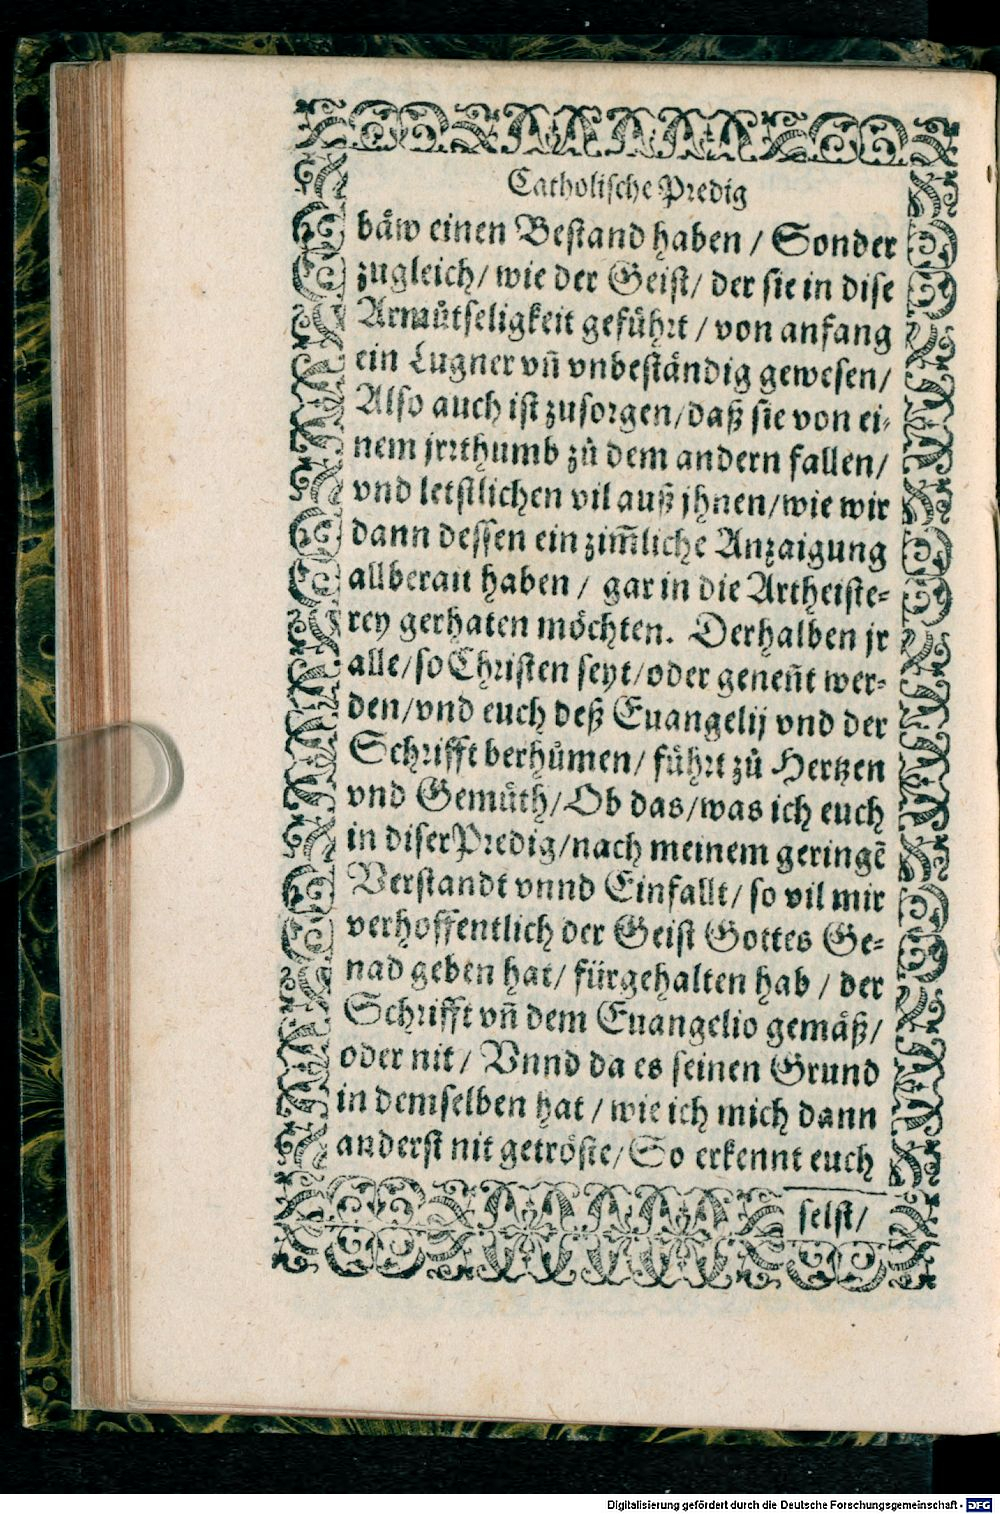 Catholische Predig
båw einen Bestand haben / Sonder
zugleich / wie der Geist / der sie in dise
Armůtseligkeit gefůhrt / von anfang
ein Lugner vñ vnbeståndig gewesen /
Also auch ist zusorgen / daß sie von ei-
nem jrrthumb zů dem andern fallen /
vnd letstlichen vil auß jhnen / wie wir
dann dessen ein zim̃liche Anzaigung
allberait haben / gar in die Artheiste-
rey gerhaten möchten. Derhalben jr
alle / so Christen seyt / oder geneñt wer-
den / vnd euch deß Euangelij vnd der
Schrifft berhůmen / fůhrt zů Hertzen
vnd Gemůth / Ob das / was ich euch
in diser Predig / nach meinem geringẽ
Verstandt vnnd Einfallt / so vil mir
verhoffentlich der Geist Gottes Ge-
nad geben hat / fürgehalten hab / der
Schrifft vñ dem Euangelio gemåß /
oder nit / Vnnd da es seinen Grund
in demselben hat / wie ich mich dann
anderst nit getröste / So erkennt euch
selst /
Digitalisierung gefördert durch die Deutsche Forschungsgemeinschaft - DFG